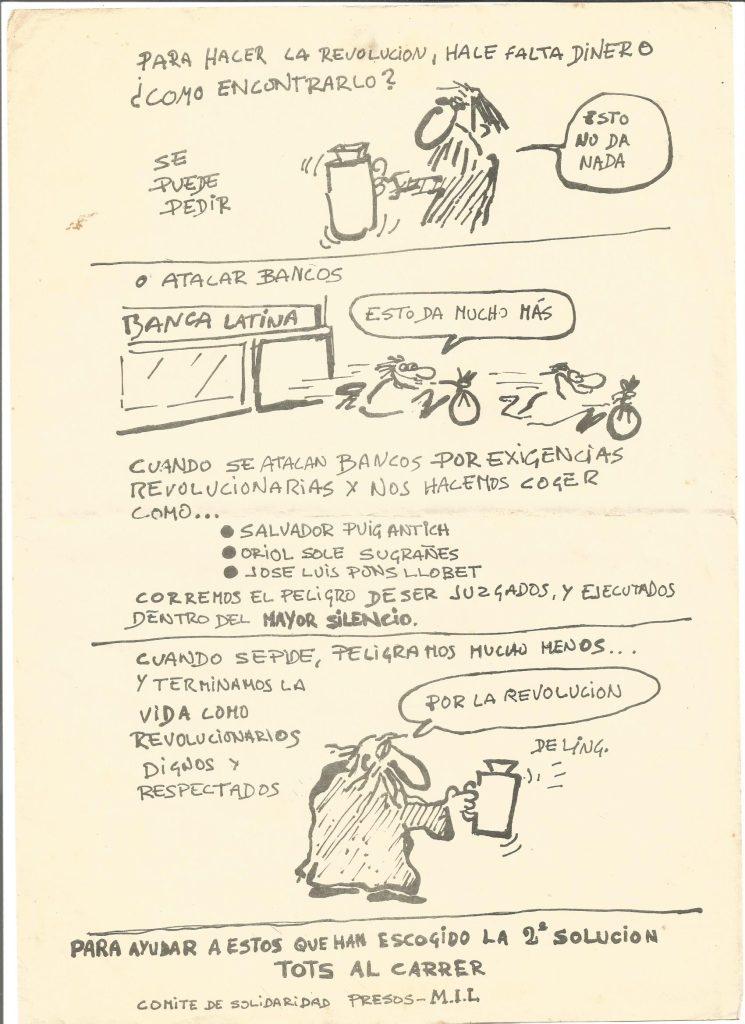 PARA HACER LA REVOLUCION, HALE FALTA DINERO
¿COMO ENCONTRARLO?
SE
PUEDE
PEDIR
ESTO
NO DA
NADA
O ATACAR BANCOS
BANCA LATINA
ESTO DA MUCHO MÁS
CUANDO SE ATACAN BANCOS POR EXIGENCIAS
REVOLUCIONARIAS Y NOS HACEMOS COGER
COMO...
● SALVADOR PUIG ANTICH
● ORIOL SOLE SUGRAÑES
● JOSE LUIS PONS LLOBET
CORREMOS EL PELIGRO DE SER JUZGADOS, Y EJECUTADOS
DENTRO DEL MAYOR SILENCIO.
CUANDO SE PIDE, PELIGRAMOS MUCHO MENOS...
Y TERMINAMOS LA
VIDA COMO
REVOLUCIONARIOS
DIGNOS Y
RESPECTADOS
POR LA REVOLUCION
DE LING.
PARA AYUDAR A ESTOS QUE HAN ESCOGIDO LA 2ª SOLUCION
TOTS AL CARRER
COMITE DE SOLIDARIDAD PRESOS - M.I.L